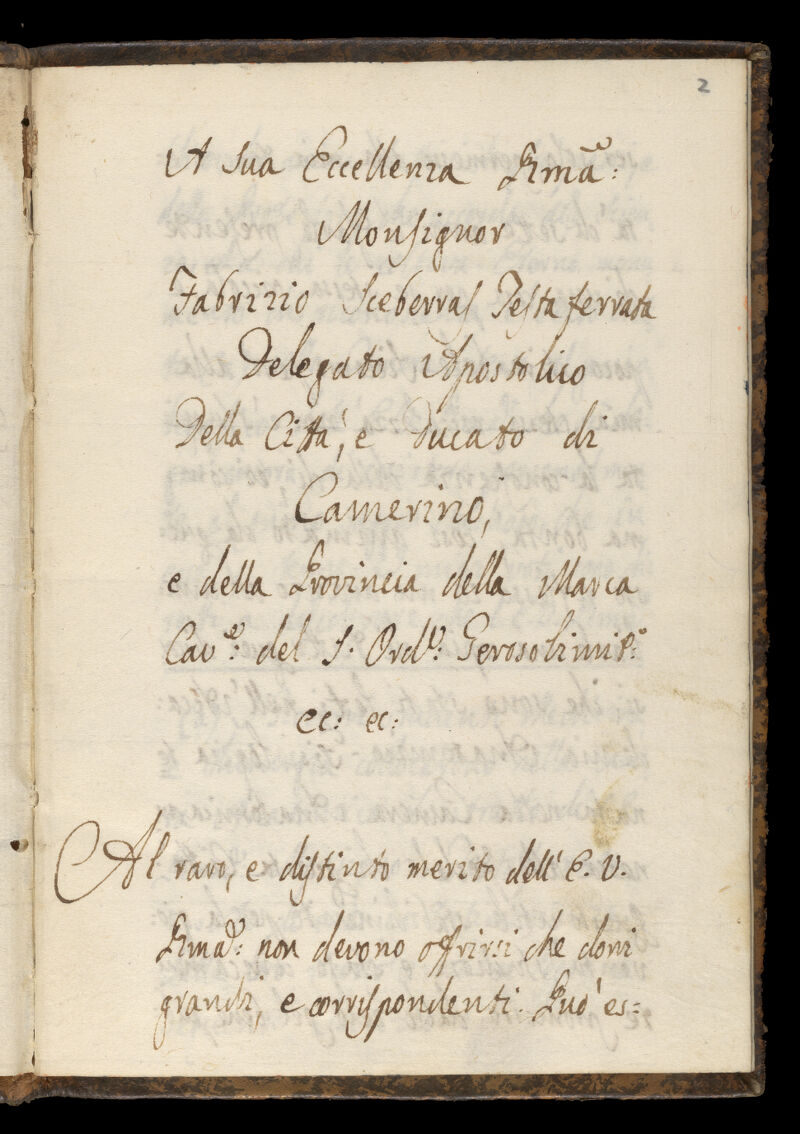 2
A sua Eccellenza Rmã:
Monsignor
Fabrizio Sceberras Testaferrata
Delegato Apostolico
Della Città, e Ducato di
Camerino,
e della Provincia della Marca
Cav:e del S. Ord:e Gerosolimit:o
ec: ec:
Al raro, e distinto merito dell' E. V.
Rma: non devono offrirsi che doni
grandi, e corrispondenti. Può es=